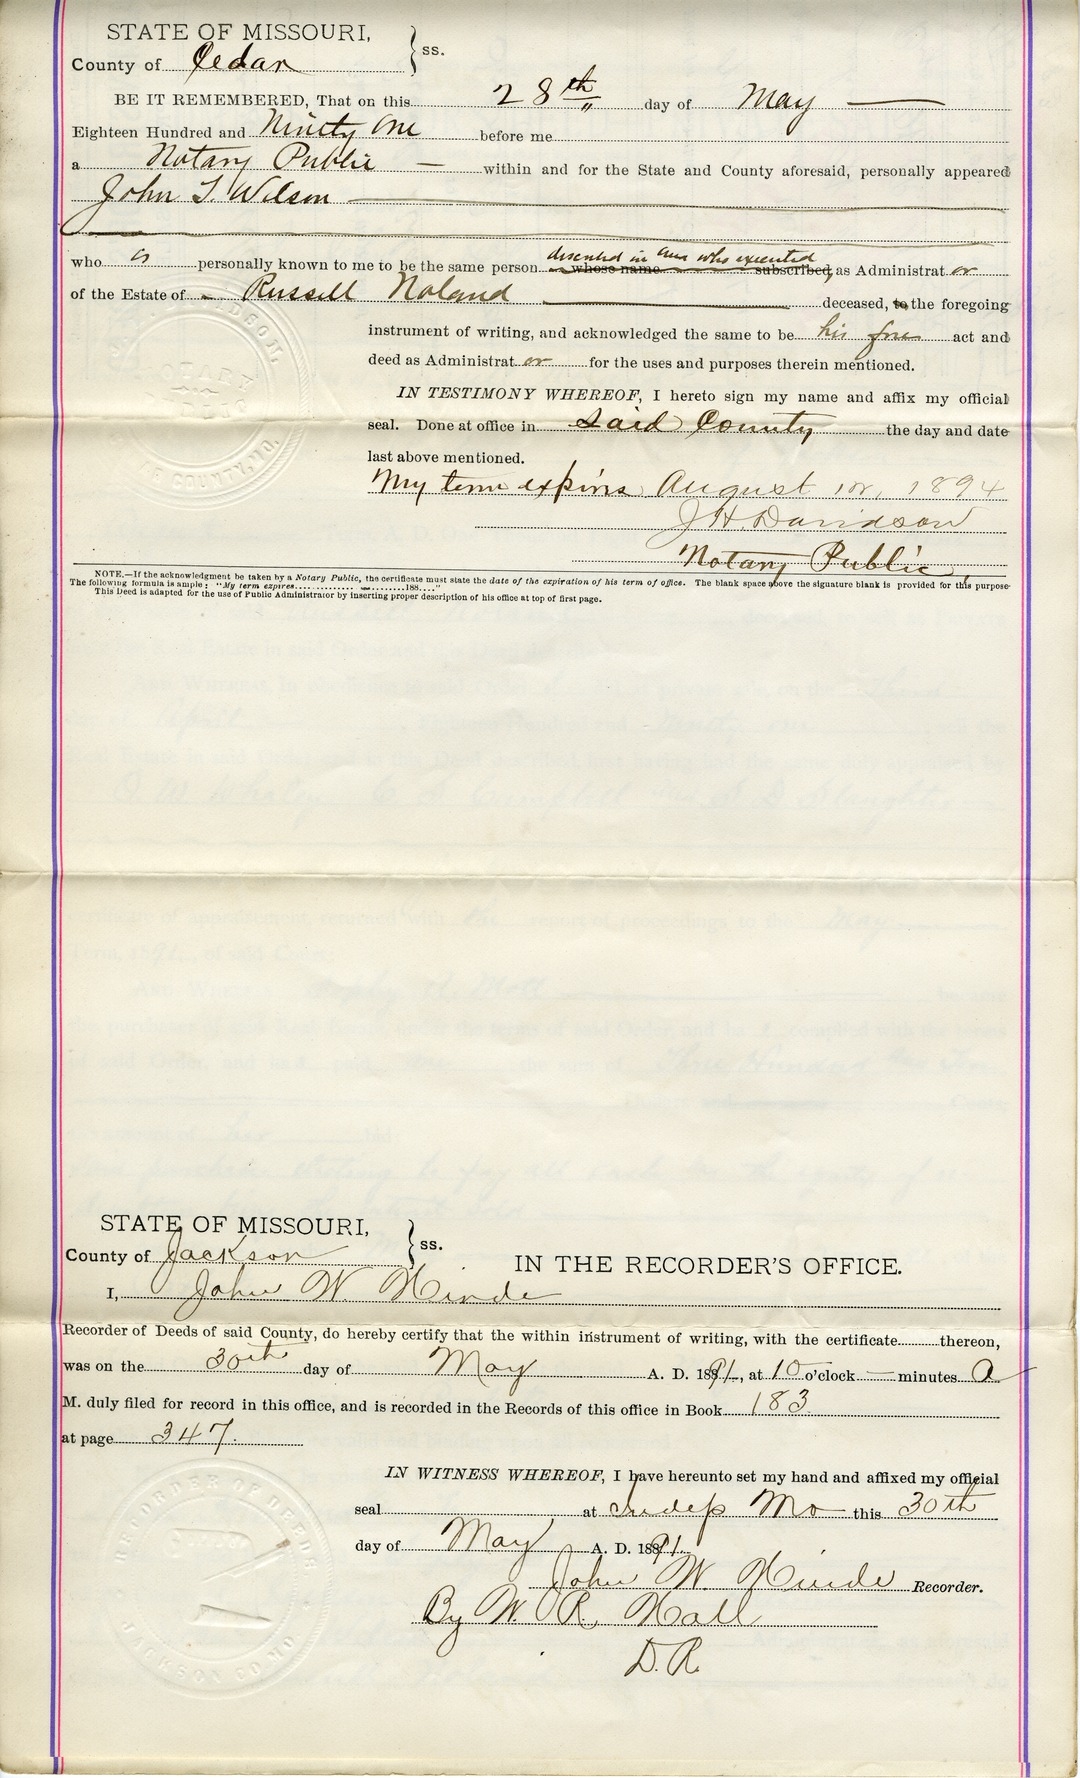 STATE OF MISSOURI,
County of Cedar } ss.
BE IT REMEMBERED, That on this 28th day of May
Eighteen Hundred and Ninety One before me
a Notary Public within and for the State and County aforesaid, personally appeared
John T. Wilson
described in and who executed
who is personally known to me to be the same person whose name subscribed, as Administrat or
of the Estate of Russell Noland deceased, to the foregoing
instrument of writing, and acknowledged the same to be his free act and
deed as Administrat or for the uses and purposes therein mentioned.
IN TESTIMONY WHEREOF, I hereto sign my name and affix my official
seal. Done at office in said County the day and date
last above mentioned.
My term expires August 1894
J. H. Davidson
Notary Public,
NOTE.—If the acknowledgment be taken by a Notary Public, the certificate must state the date of the expiration of his term of office. The blank space above the signature blank is provided for this purpose
The following formula is ample: "My term expires..........188...."
This Deed is adapted for the use of Public Administrator by inserting proper description of his office at top of first page.
STATE OF MISSOURI,
County of Jackson } ss.
IN THE RECORDER'S OFFICE.
I, John W. Hinde
Recorder of Deeds of said County, do hereby certify that the within instrument of writing, with the certificate thereon,
was on the 30th day of May A. D. 1891, at 10 o'clock — minutes A
M. duly filed for record in this office, and is recorded in the Records of this office in Book 183
at page 347.
IN WITNESS WHEREOF, I have hereunto set my hand and affixed my official
seal at Indep Mo this 30th
day of May A. D. 1891.
John W. Hinde Recorder.
By W. R. Hall
D. R.
RECORDER OF DEEDS
JACKSON CO MO